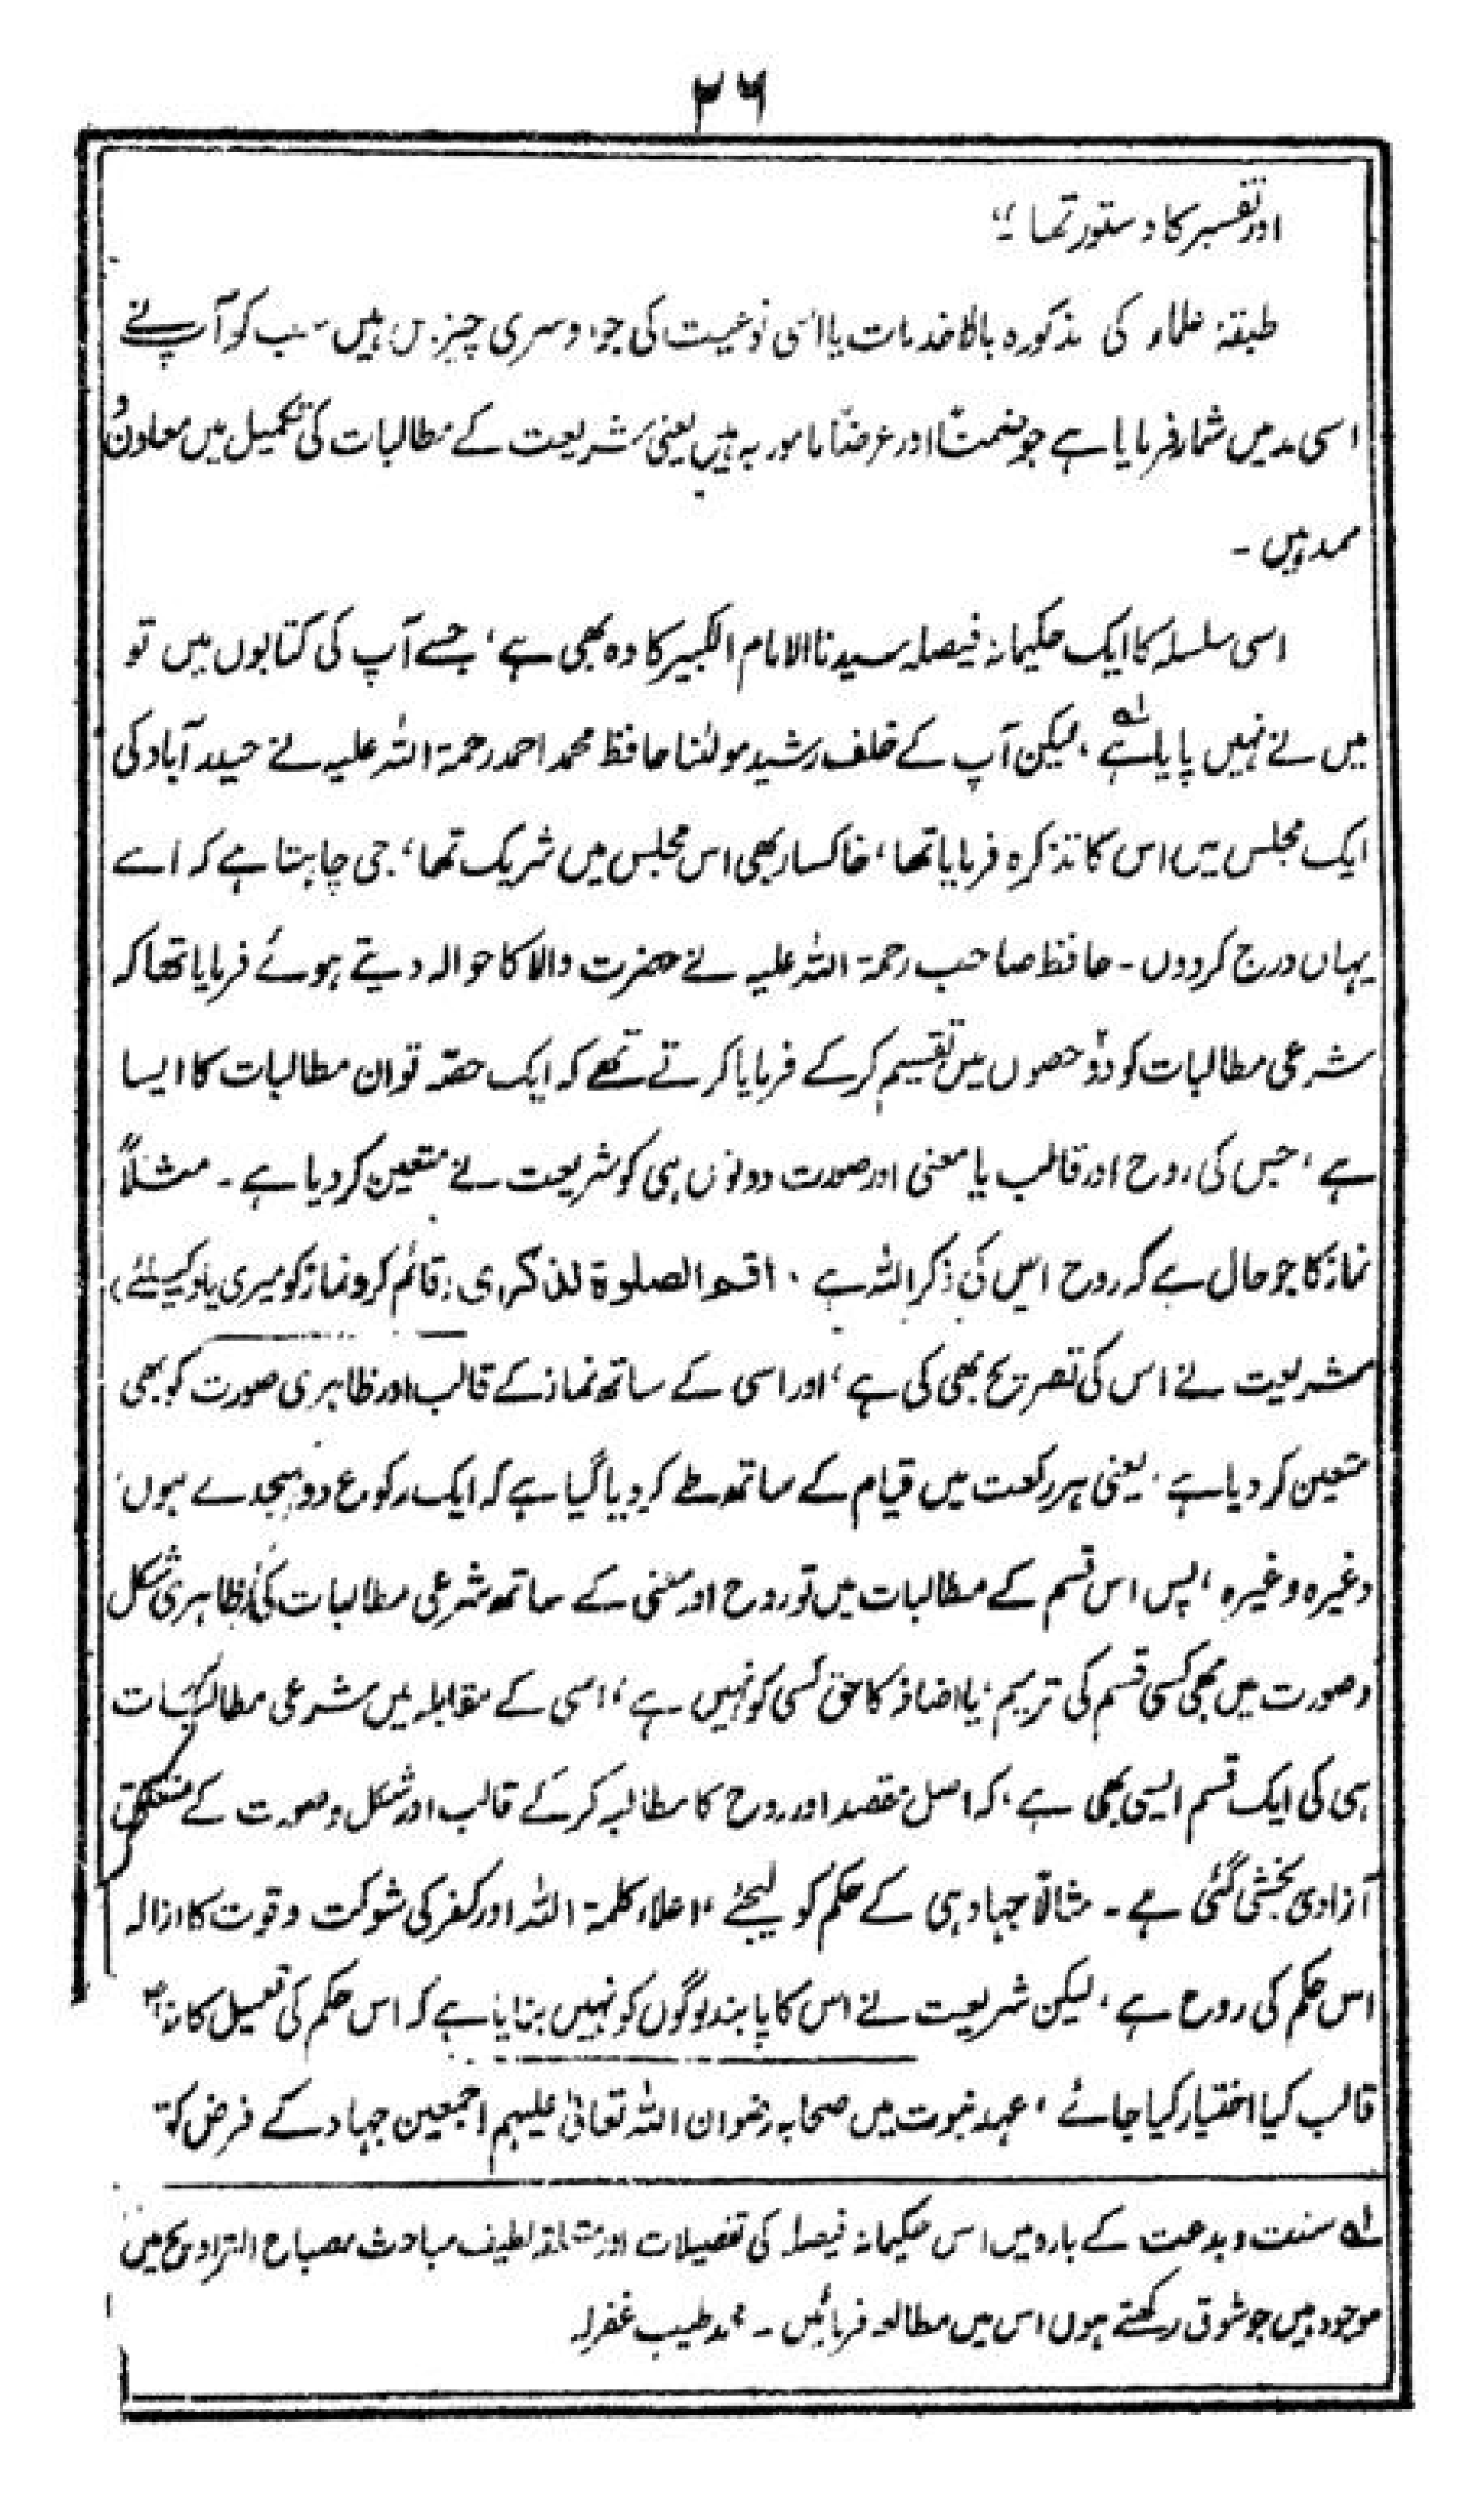 ۲۶
اور تفسیر کا دستور تھا۔"
طبقۂ علماء کی مذکورہ بالا خدمات یا اسی نوعیت کی جو دوسری چیزیں ہیں سب کو آپ نے
اسی مد میں شمار فرمایا ہے جو ضمناً اور عرضاً مامور بہ ہیں یعنی شریعت کے مطالبات کی تکمیل میں معاون و
ممد ہیں ۔
اسی سلسلہ کا ایک حکیمانہ فیصلہ سیدنا الامام الکبیر کا وہ بھی ہے، جسے آپ کی کتابوں میں تو
میں نے نہیں پایا ہے لہ، لیکن آپ کے خلف رشید مولٰنا حافظ محمد احمد رحمۃ اللہ علیہ نے حیدرآباد کی
ایک مجلس میں اس کا تذکرہ فرمایا تھا، خاکسار بھی اس مجلس میں شریک تھا، جی چاہتا ہے کہ اسے
یہاں درج کردوں ۔ حافظ صاحب رحمۃ اللہ علیہ نے حضرت والا کا حوالہ دیتے ہوئے فرمایا تھا کہ
شرعی مطالبات کو دو حصوں میں تقسیم کرکے فرمایا کرتے تھے کہ ایک حصّہ تو ان مطالبات کا ایسا
ہے، جس کی روح اور قالب یا معنی اور صورت دونوں ہی کو شریعت نے متعین کردیا ہے ۔ مثلاً
نماز کا جو حال ہے کہ روح اس کی ذکر اللہ ہے ، اقم الصلوۃ لذکری (قائم کرو نماز کو میری یاد کیلئے)
شریعت نے اس کی تصریح بھی کی ہے، اور اسی کے ساتھ نماز کے قالب اور ظاہری صورت کو بھی
متعین کردیا ہے، یعنی ہر رکعت میں قیام کے ساتھ طے کردیا گیا ہے کہ ایک رکوع دو سجدے ہوں،
وغیرہ وغیرہ، پس اس قسم کے مطالبات میں تو روح اور معنی کے ساتھ شرعی مطالبات کی ظاہری شکل
و صورت میں بھی کسی قسم کی ترمیم، یا اضافہ کا حق کسی کو نہیں ہے، اسی کے مقابلہ میں شرعی مطالبات
ہی کی ایک قسم ایسی بھی ہے، کہ اصل مقصد اور روح کا مطالبہ کرکے قالب اور شکل و صورت کے متعلق
آزادی بخشی گئی ہے ۔ مثالاً جہاد ہی کے حکم کو لیجئے، اعلاء کلمۃ اللہ اور کفر کی شوکت و قوت کا ازالہ
اس حکم کی روح ہے، لیکن شریعت نے اس کا پابند لوگوں کو نہیں بنایا ہے کہ اس حکم کی تعمیل کا
قالب کیا اختیار کیا جائے، عہد نبوت میں صحابہ رضوان اللہ تعالٰی علیہم اجمعین جہاد کے فرض کو
لہ سنت و بدعت کے بارہ میں اس حکیمانہ فیصلہ کی تفصیلات اور متعلقہ لطیف مباحث مصباح التراویح میں
موجود ہیں جو شوق رکھتے ہوں اس میں مطالعہ فرمائیں ۔ محمد طیب غفرلہ